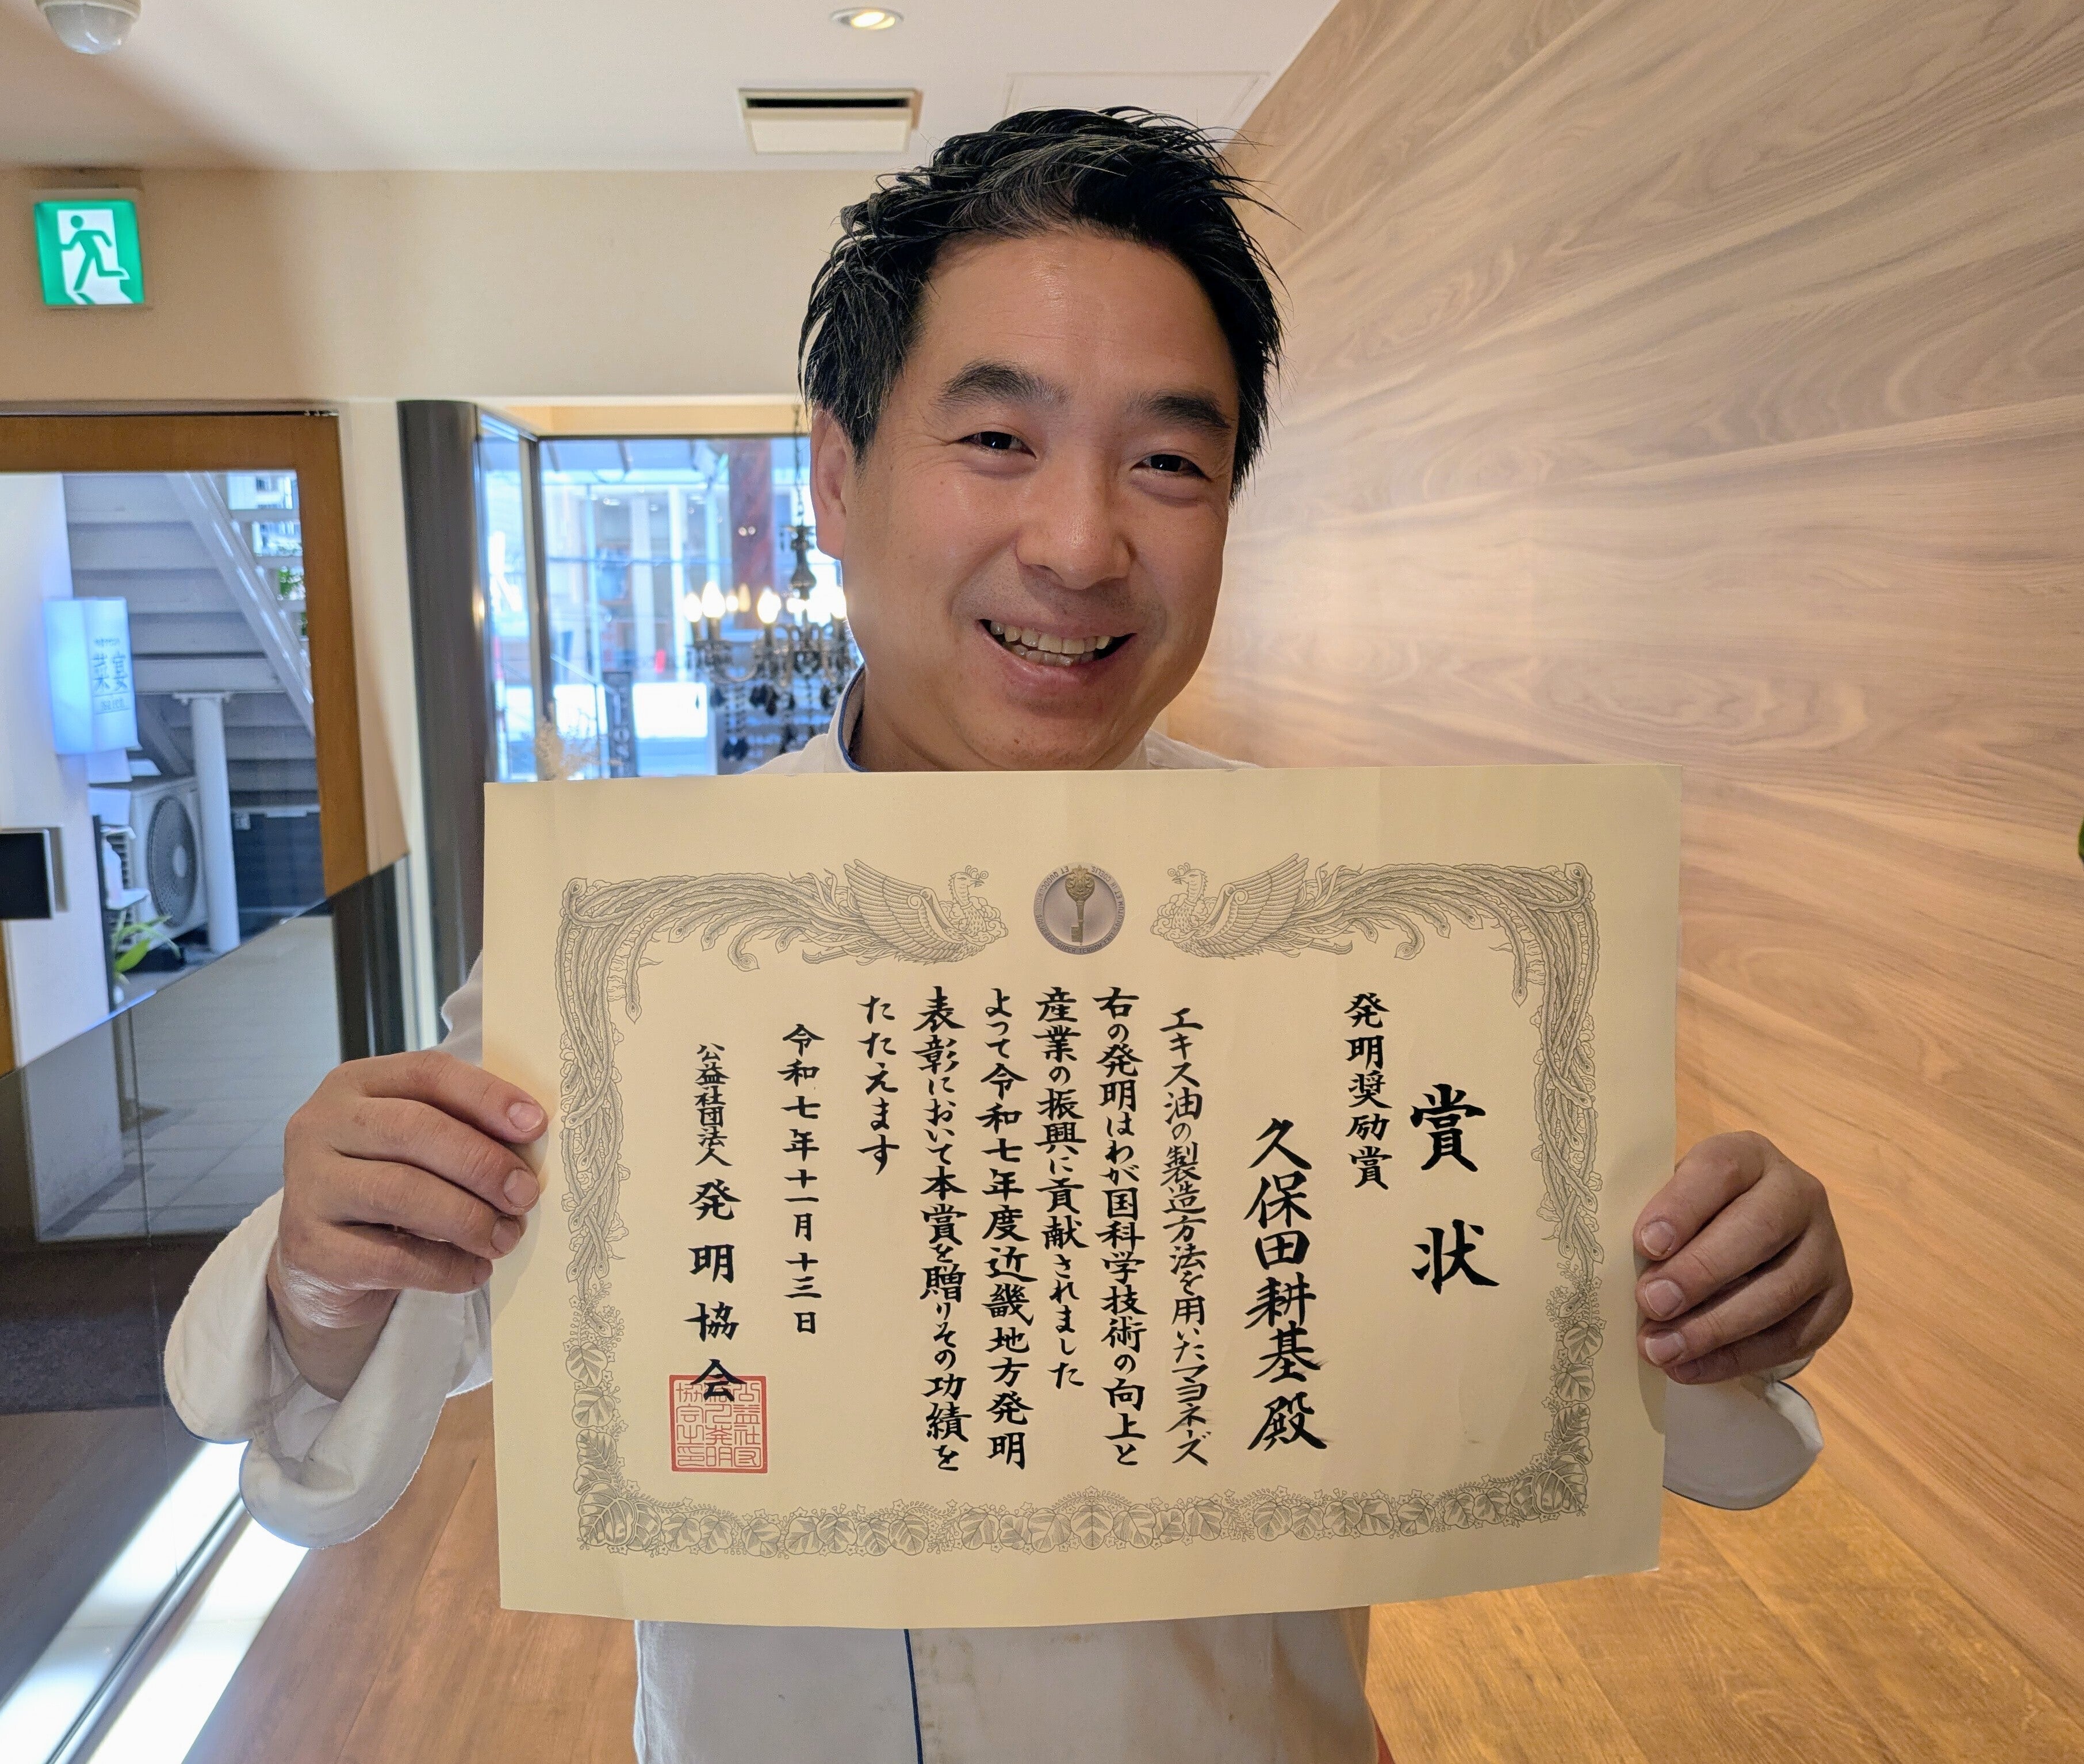 賞状
発明奨励賞
久保田耕基殿
エキス油の製造方法を用いたマヨネーズ
右の発明はわが国科学技術の向上と
産業の振興に貢献されました
よって令和七年度近畿地方発明
表彰において本賞を贈りその功績を
たたえます
令和七年十一月十三日
公益社団法人発明協会